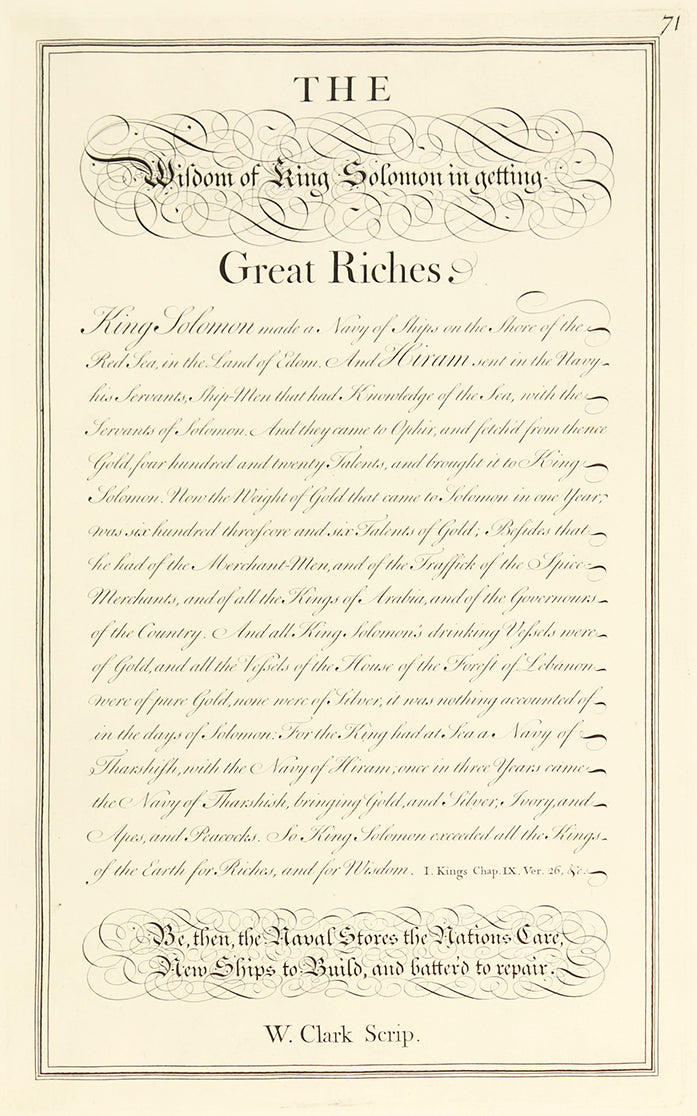 71
THE
Wisdom of King Solomon in getting
Great Riches.
King Solomon made a Navy of Ships on the Shore of the
Red Sea, in the Land of Edom. And Hiram sent in the Navy
his Servants, Ship-Men that had Knowledge of the Sea, with the
Servants of Solomon. And they came to Ophir, and fetch'd from thence
Gold, four hundred and twenty Talents, and brought it to King
Solomon. Now the Weight of Gold that came to Solomon in one Year,
was six hundred threeſcore and six Talents of Gold; Beſides that
he had of the Merchant-Men, and of the Traffick of the Spice
Merchants, and of all the Kings of Arabia, and of the Governours
of the Country. And all King Solomon's drinking Veſsels were
of Gold, and all the Veſsels of the House of the Foreſt of Lebanon
were of pure Gold, none were of Silver, it was nothing accounted of
in the days of Solomon: For the King had at Sea a Navy of
Tharshiſh, with the Navy of Hiram; once in three Years came
the Navy of Tharshish, bringing Gold, and Silver, Ivory, and
Apes, and Peacocks. So King Solomon exceeded all the Kings
of the Earth for Riches, and for Wisdom. I. Kings Chap. IX. Ver. 26, &c.
Be, then, the Naval Stores the Nations Care,
New Ships to Build, and batter'd to repair.
W. Clark Scrip.